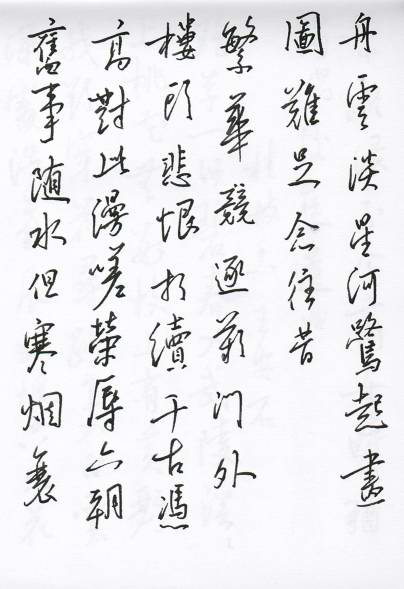 舟雲淡星河鷺起畫
圖難足念往昔
繁華競逐歎門外
樓頭悲恨相續千古憑
高對此漫嗟榮辱六朝
舊事随水但寒烟衰